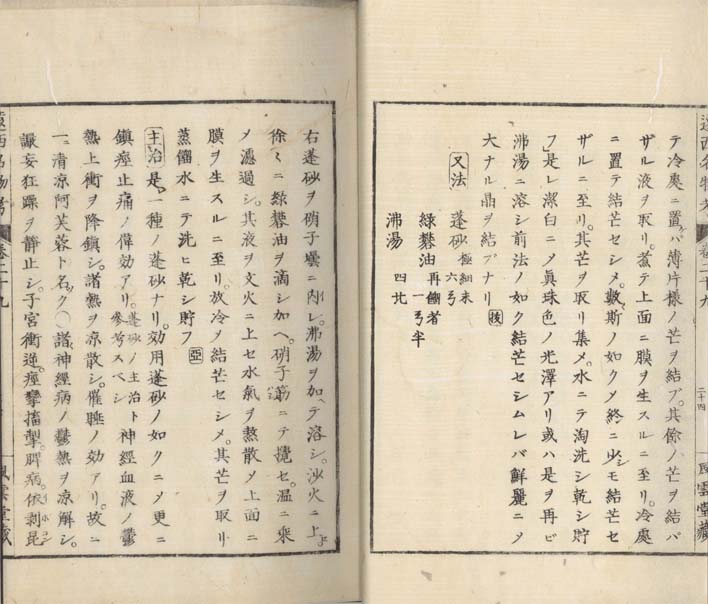 テ冷處ニ置ケバ薄片様ノ芒ヲ結ブ。其餘ノ芒ヲ結バ
ザル液ヲ取リ。煮テ上面ニ膜ヲ生スルニ至リ。冷處
ニ置テ結芒セシメ。數斯ノ如クメ終ニ少シモ結芒セ
ザルニ至リ。其芒ヲ取リ集メ。水ニテ淘洗シ乾シ貯
フ」是レ潔白ニメ真珠色ノ光澤アリ或ハ是ヲ再ビ
沸湯ニ溶シ前法ノ如ク結芒セシムレバ鮮麗ニメ
大ナル晶ヲ結ブナリ
又法 蓬砂 極細末 六弓
緑礬油 再餾者 一弓半
沸湯 四
二十四
風雲堂藏
右蓬砂ヲ硝子罎ニ内レ。沸湯ヲ加ヘテ溶シ。沙火ニ上
徐〻ニ緑礬油ヲ滴シ加ヘ。硝子筋ニテ攪セ。温ニ乘
メ濾過シ。其液ヲ文火ニ上セ水氣ヲ熬散メ上面ニ
膜ヲ生スルニ至リ。放冷メ結芒セシメ。其芒ヲ取リ
蒸餾水ニテ洗ヒ乾シ貯フ 亞
主治 是。一種ノ蓬砂ナリ。効用蓬砂ノ如クニメ更ニ
鎮痙止痛ノ偉効アリ。蓬砂ノ主治ト参考スベシ 神經血液ノ鬱
熱上衝ヲ降鎮シ。諸熱ヲ凉散シ。催睡ノ効アリ。故ニ
一ニ清凉阿芙蓉ト名ク〇諸神經病ノ鬱熱ヲ凉解シ。
讝妄狂躁ヲ静止シ。子宮衝逆。痙攣搐掣。脾病。依剥昆
遠西名物考 卷二十九
風雲堂藏